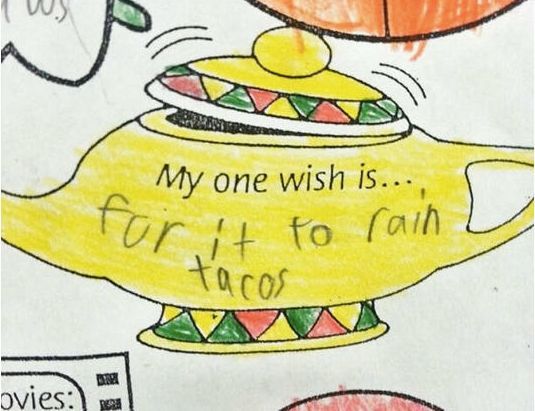 My one wish is...
for it to rain
tacos
ovies: